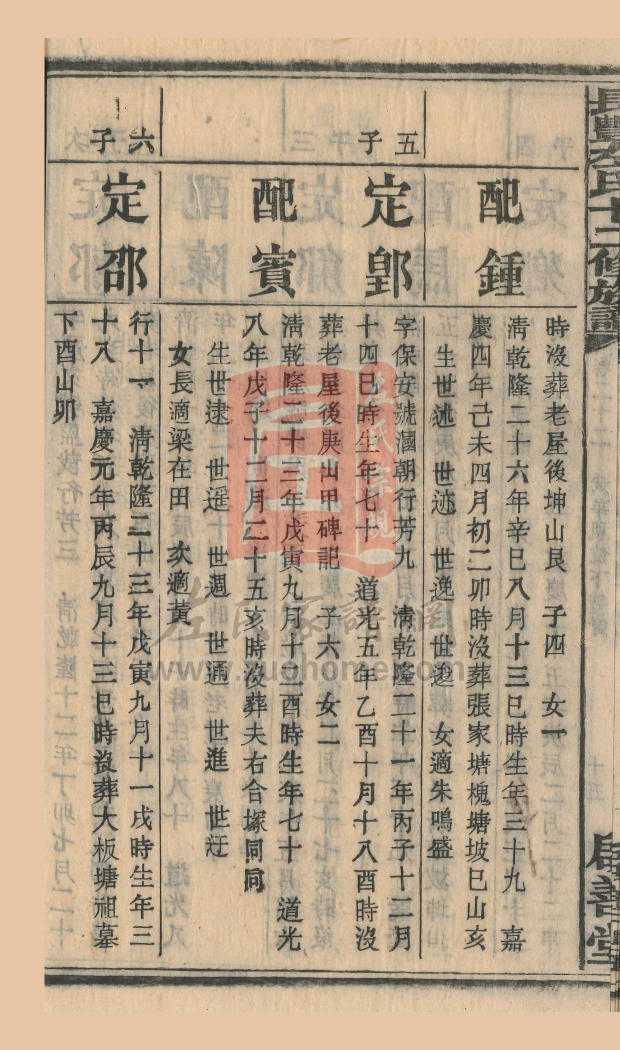 長豐左氏十二修族譜
啟善堂
時沒葬老屋後坤山艮 子四 女一
配鍾
清乾隆二十六年辛巳八月十三巳時生年三十九 嘉
慶四年己未四月初二卯時沒葬張家塘槐塘坡巳山亥
生世述 世迹 世逸 世逡 女適朱鳴盛
五子
定鄞
字保安號涸朝行芳九 清乾隆二十一年丙子十二月
十四巳時生年七十 道光五年乙酉十月十八酉時沒
葬老屋後庚山甲碑記 子六 女二
配賓
清乾隆二十三年戊寅九月十二酉時生年七十 道光
八年戊子十二月二十五亥時沒葬夫右合塚同向
生世逮 世遥 世週 世通 世進 世迂
女長適梁在田 次適黃
六子
定邵
行十一 清乾隆二十三年戊寅九月十一戌時生年三
十八 嘉慶元年丙辰九月十三巳時沒葬大板塘祖墓
下酉山卯
左氏宗親
左氏家譜網
www.zuohome.com